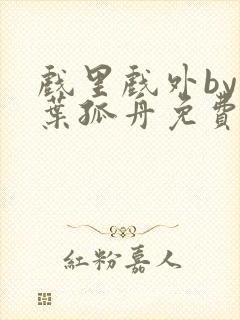 戲里戲外by
葉孤舟免費
紅粉嘉人